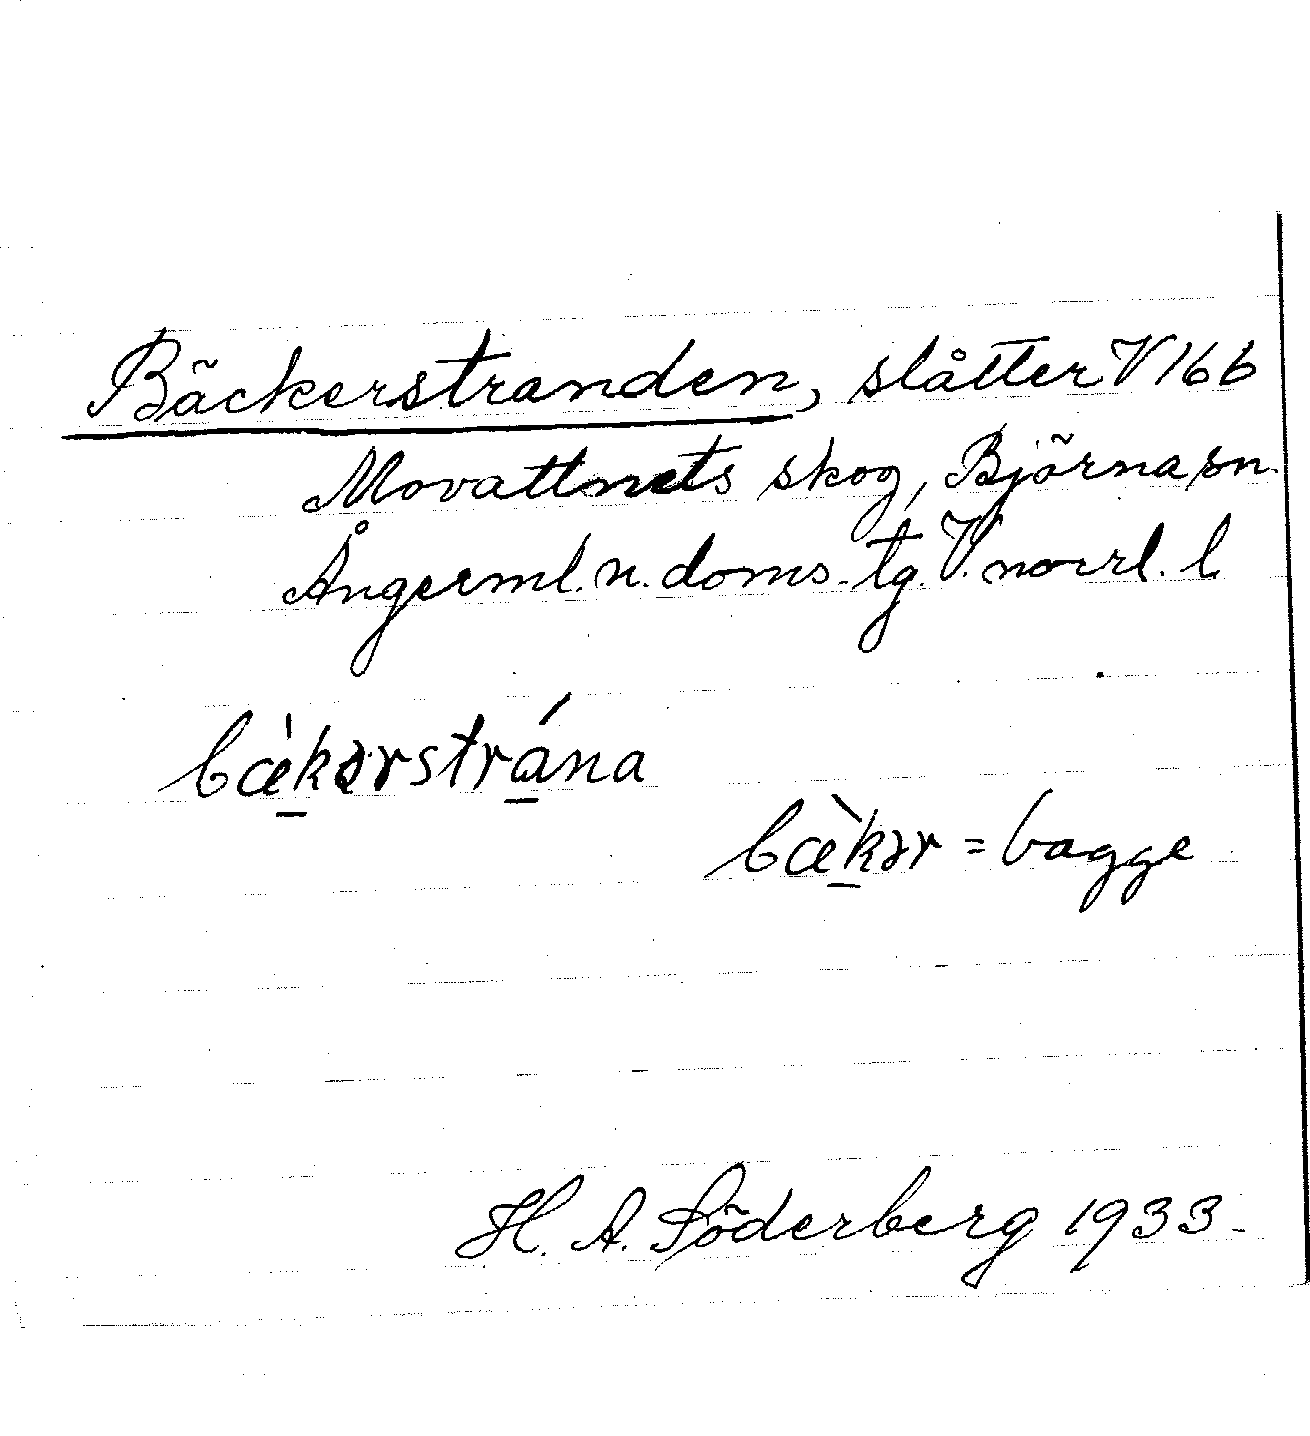 Bäckerstranden, slåtter V 16 b
Movattnets skog, Björna sn.
Ångerml. n. doms. tg. V. norrl. l
bæ̀kərstrána
bæ̀kər = bagge
H. A. Söderberg 1933.